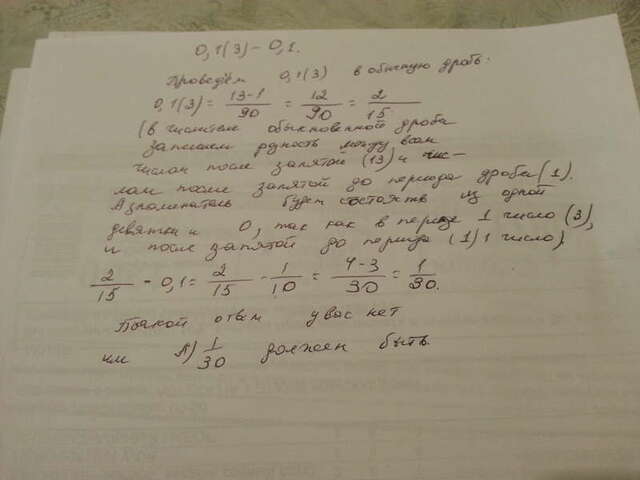 0,1(3) - 0,1.
Проведём 0,1(3) в обычную дробь:
0,1(3) = 13-1/90 = 12/90 = 2/15
(в числителе обыкновенной дроба
запишем рдность между всем
числом после запятой (13) и чис-
лом после запятой до периода дроби (1).
А знаменатель будет состоять из одной
девятки и 0, так как в периоде 1 число (3),
и после запятой до периода (1) 1 число)
2/15 - 0,1 = 2/15 - 1/10 = 4-3/30 = 1/30.
ответ у вас нет
или А) 1/30 должен быть